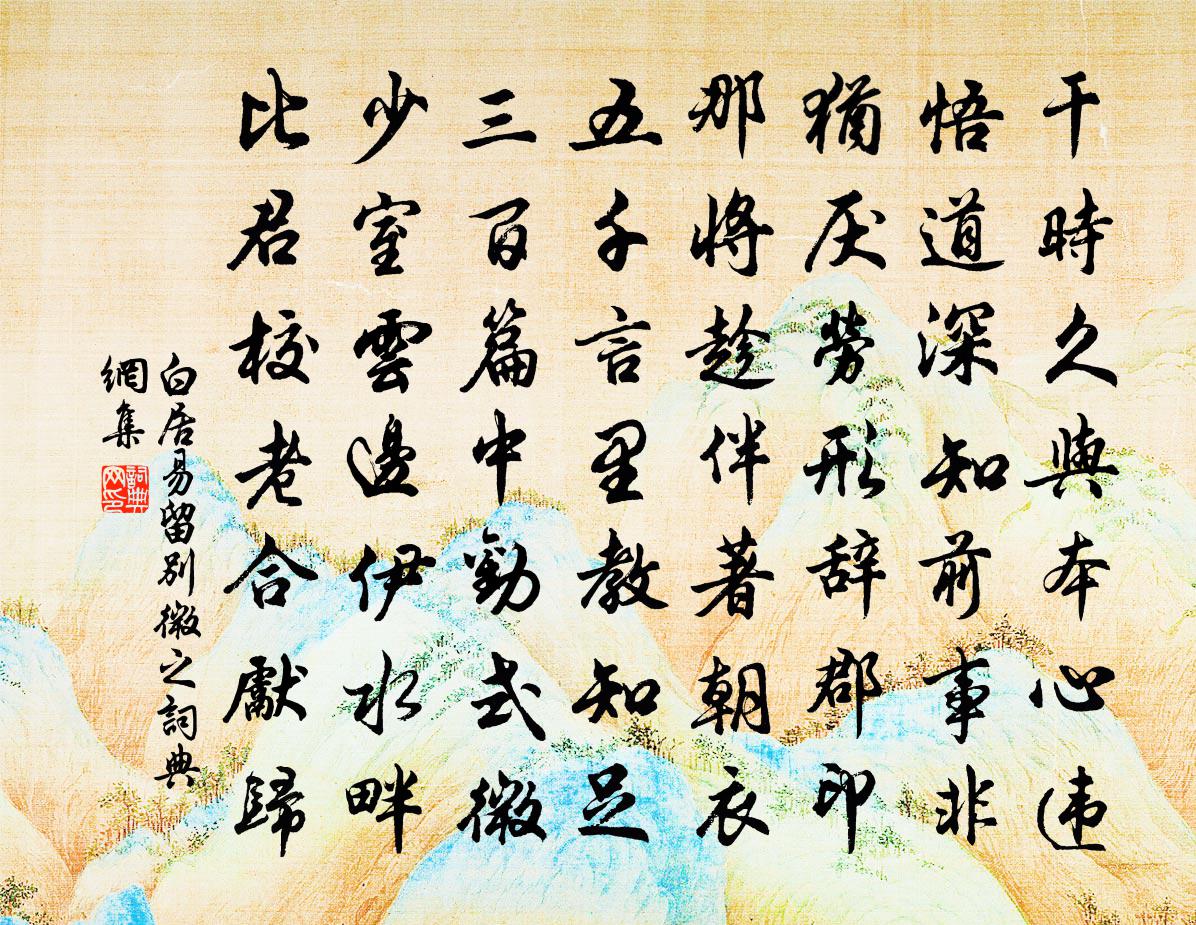 干時久與本心违
悟道深知前事非
猶厌勞形辞郡印
那将趁伴著朝衣
五千言里教知足
三百篇中勸式微
少室雲邊伊水畔
比君校老合獻歸
白居易留别微之詞典
網集
詞典网印